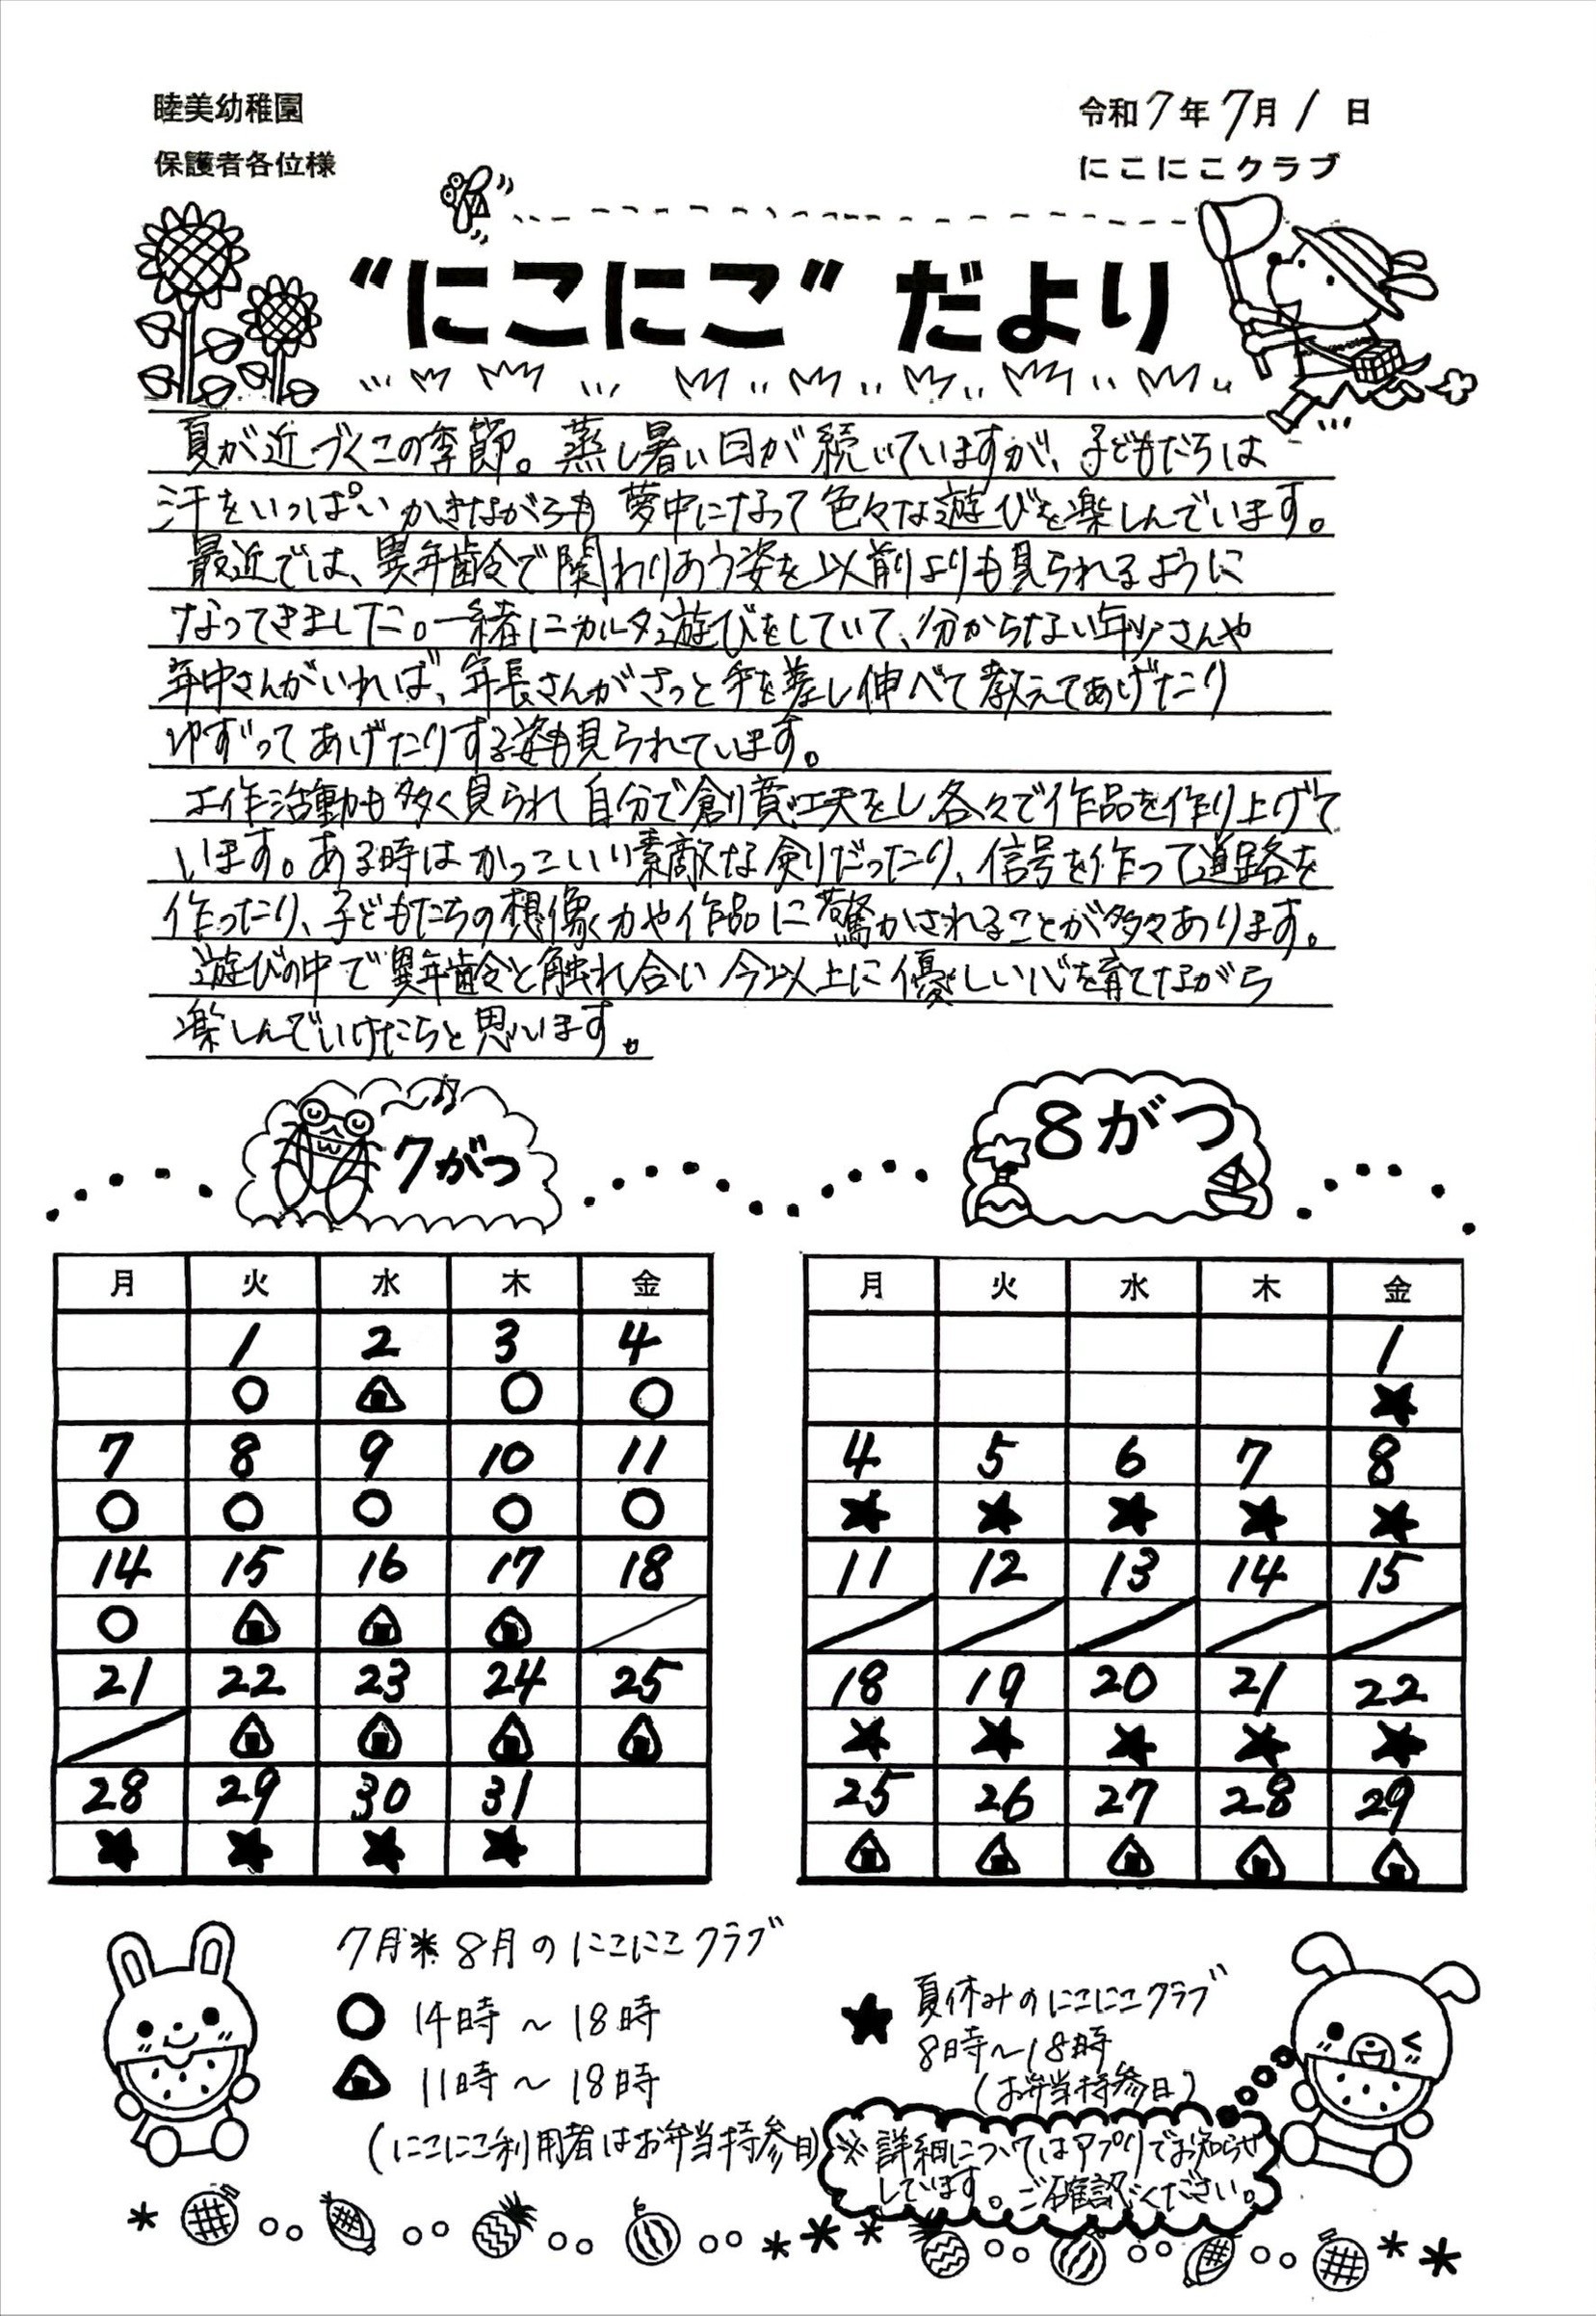 睦美幼稚園
保護者各位様
令和7年7月1日
にこにこクラブ
“にこにこ”だより
夏が近づくこの季節。蒸し暑い日が続いていますが、子どもたちは
汗をいっぱいかきながらも夢中になって色々な遊びを楽しんでいます。
最近では、異年齢で関わりあう姿を以前よりも見られるように
なってきました。一緒にカルタ遊びをしていて、分からない年少さんや
年中さんがいれば、年長さんがさっと手を差し伸べて教えてあげたり
ゆずってあげたりする姿も見られています。
工作活動も多く見られ自分で創意工夫をし各々で作品を作り上げて
います。ある時はかっこいい素敵な剣だったり、信号を作って道路を
作ったり、子どもたちの想像力や作品に驚かされることが多々あります。
遊びの中で異年齢と触れ合い今以上に優しい心を育てながら
楽しんでいけたらと思います。
7がつ
月 火 水 木 金
1 2 3 4
○ ○ ○
7 8 9 10 11
○ ○ ○ ○ ○
14 15 16 17 18
○
21 22 23 24 25
28 29 30 31
★ ★ ★ ★
8がつ
月 火 水 木 金
1
★
4 5 6 7 8
★ ★ ★ ★ ★
11 12 13 14 15
18 19 20 21 22
★ ★ ★ ★ ★
25 26 27 28 29
7月*8月のにこにこクラブ
○ 14時～18時
11時～18時
(にこにこ利用者はお弁当持参日)
★ 夏休みのにこにこクラブ
8時～18時
(お弁当持参日)
※詳細についてはアプリでお知らせ
しています。ご確認ください。